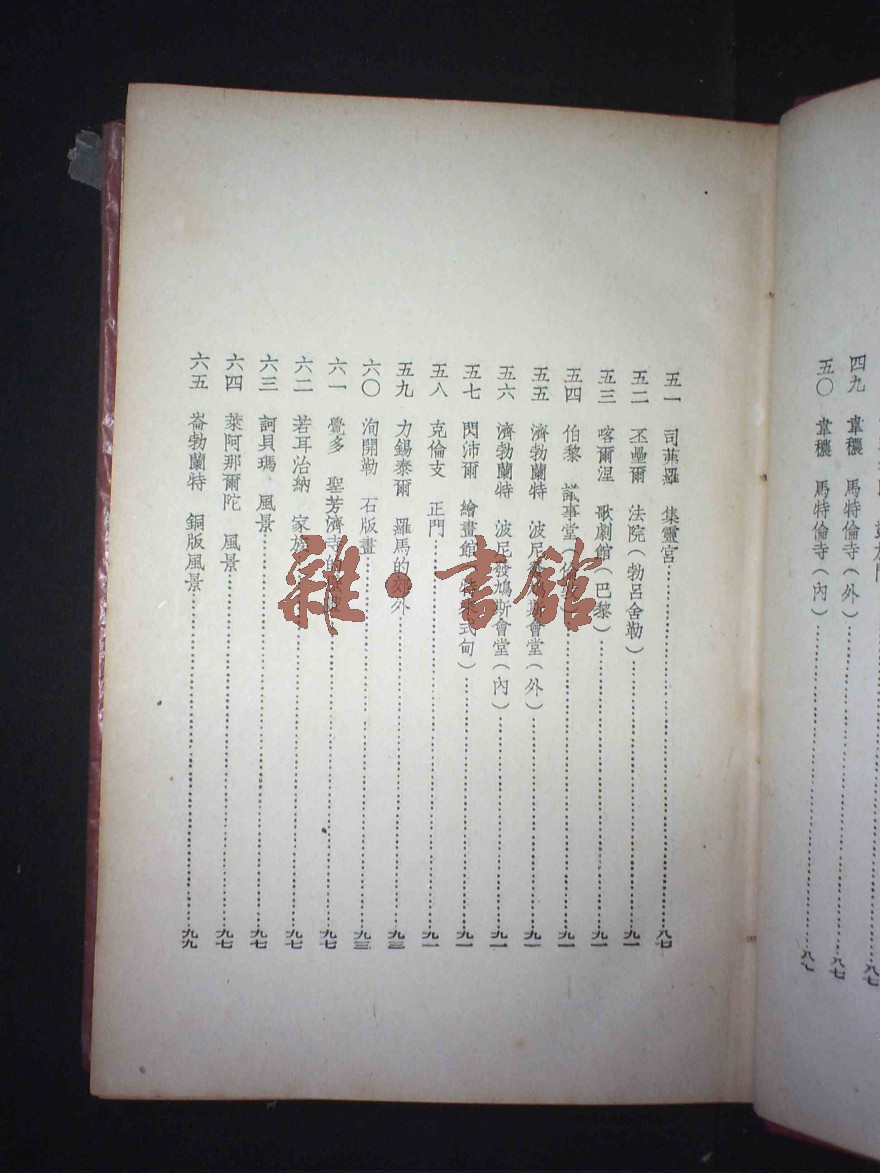 四九 韋穠 馬特倫寺（外）………八七
五〇 韋穠 馬特倫寺（內）………八七
五一 司茀羅 集靈宮………八七
五二 丕壘爾 法院（勃呂舍勒）………九一
五三 喀爾涅 歌劇館（巴黎）………九一
五四 伯黎 議事堂（）………九一
五五 濟勃蘭特 波尼會堂（外）………九一
五六 濟勃蘭特 波尼發鳩斯會堂（內）………九一
五七 閃沛爾 繪畫館（式甸）………九一
五八 克倫支 正門………九一
五九 力錫泰爾 羅馬的郊外………九三
六〇 洵開勒 石版畫………九三
六一 覺多 聖芳濟寺的………九七
六二 若耳治納 家族………九七
六三 訶貝瑪 風景………九七
六四 萊阿那爾陀 風景………九七
六五 崙勃蘭特 銅版風景………九九
雜·書館